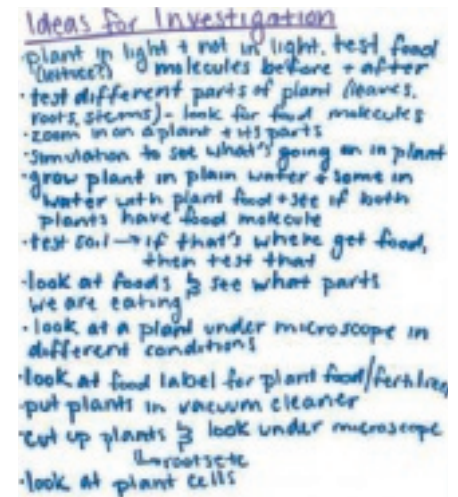 Ideas for Investigation
· plant in light + not in light. test food
(lettuce?) molecules before + after
· test different parts of plant (leaves,
roots, stems) - look for food molecules
· zoom in on a plant + its parts
· simulation to see what's going on in plant
· grow plant in plain water + some in
water with plant food + see if both
plants have food molecule
· test soil → if that's where get food,
then test that
· look at foods & see what parts
we are eating
· look at a plant under microscope in
different conditions
· look at food label for plant food/fertilizer
· put plants in vacuum cleaner
· cut up plants & look under microscope
↳ roots etc
· look at plant cells